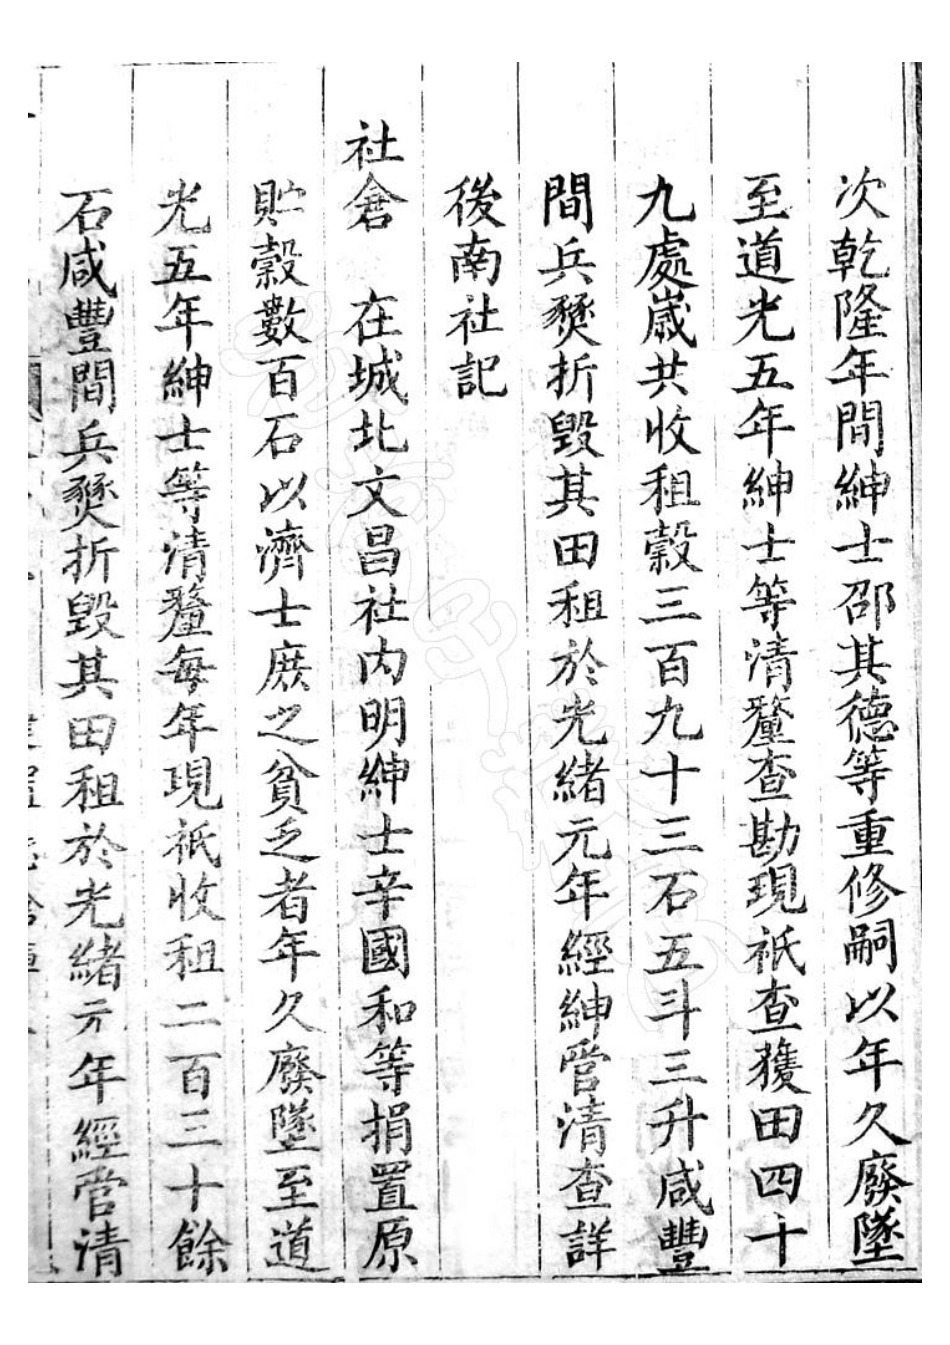 次乾隆年間紳士邵其德等重修嗣以年久廢墜
至道光五年紳士等清釐查勘現祇查獲田四十
九處嵗共收租穀三百九十三石五斗三升咸豐
間兵燹折毀其田租於光緒元年經紳管清查詳
後南社記
社倉 在城北文昌社内明紳士辛國和等捐置原
貯穀數百石以濟士庶之貧乏者年久廢墜至道
光五年紳士等清釐每年現祇收租二百三十餘
石咸豐間兵燹折毀其田租於光緒元年經管清